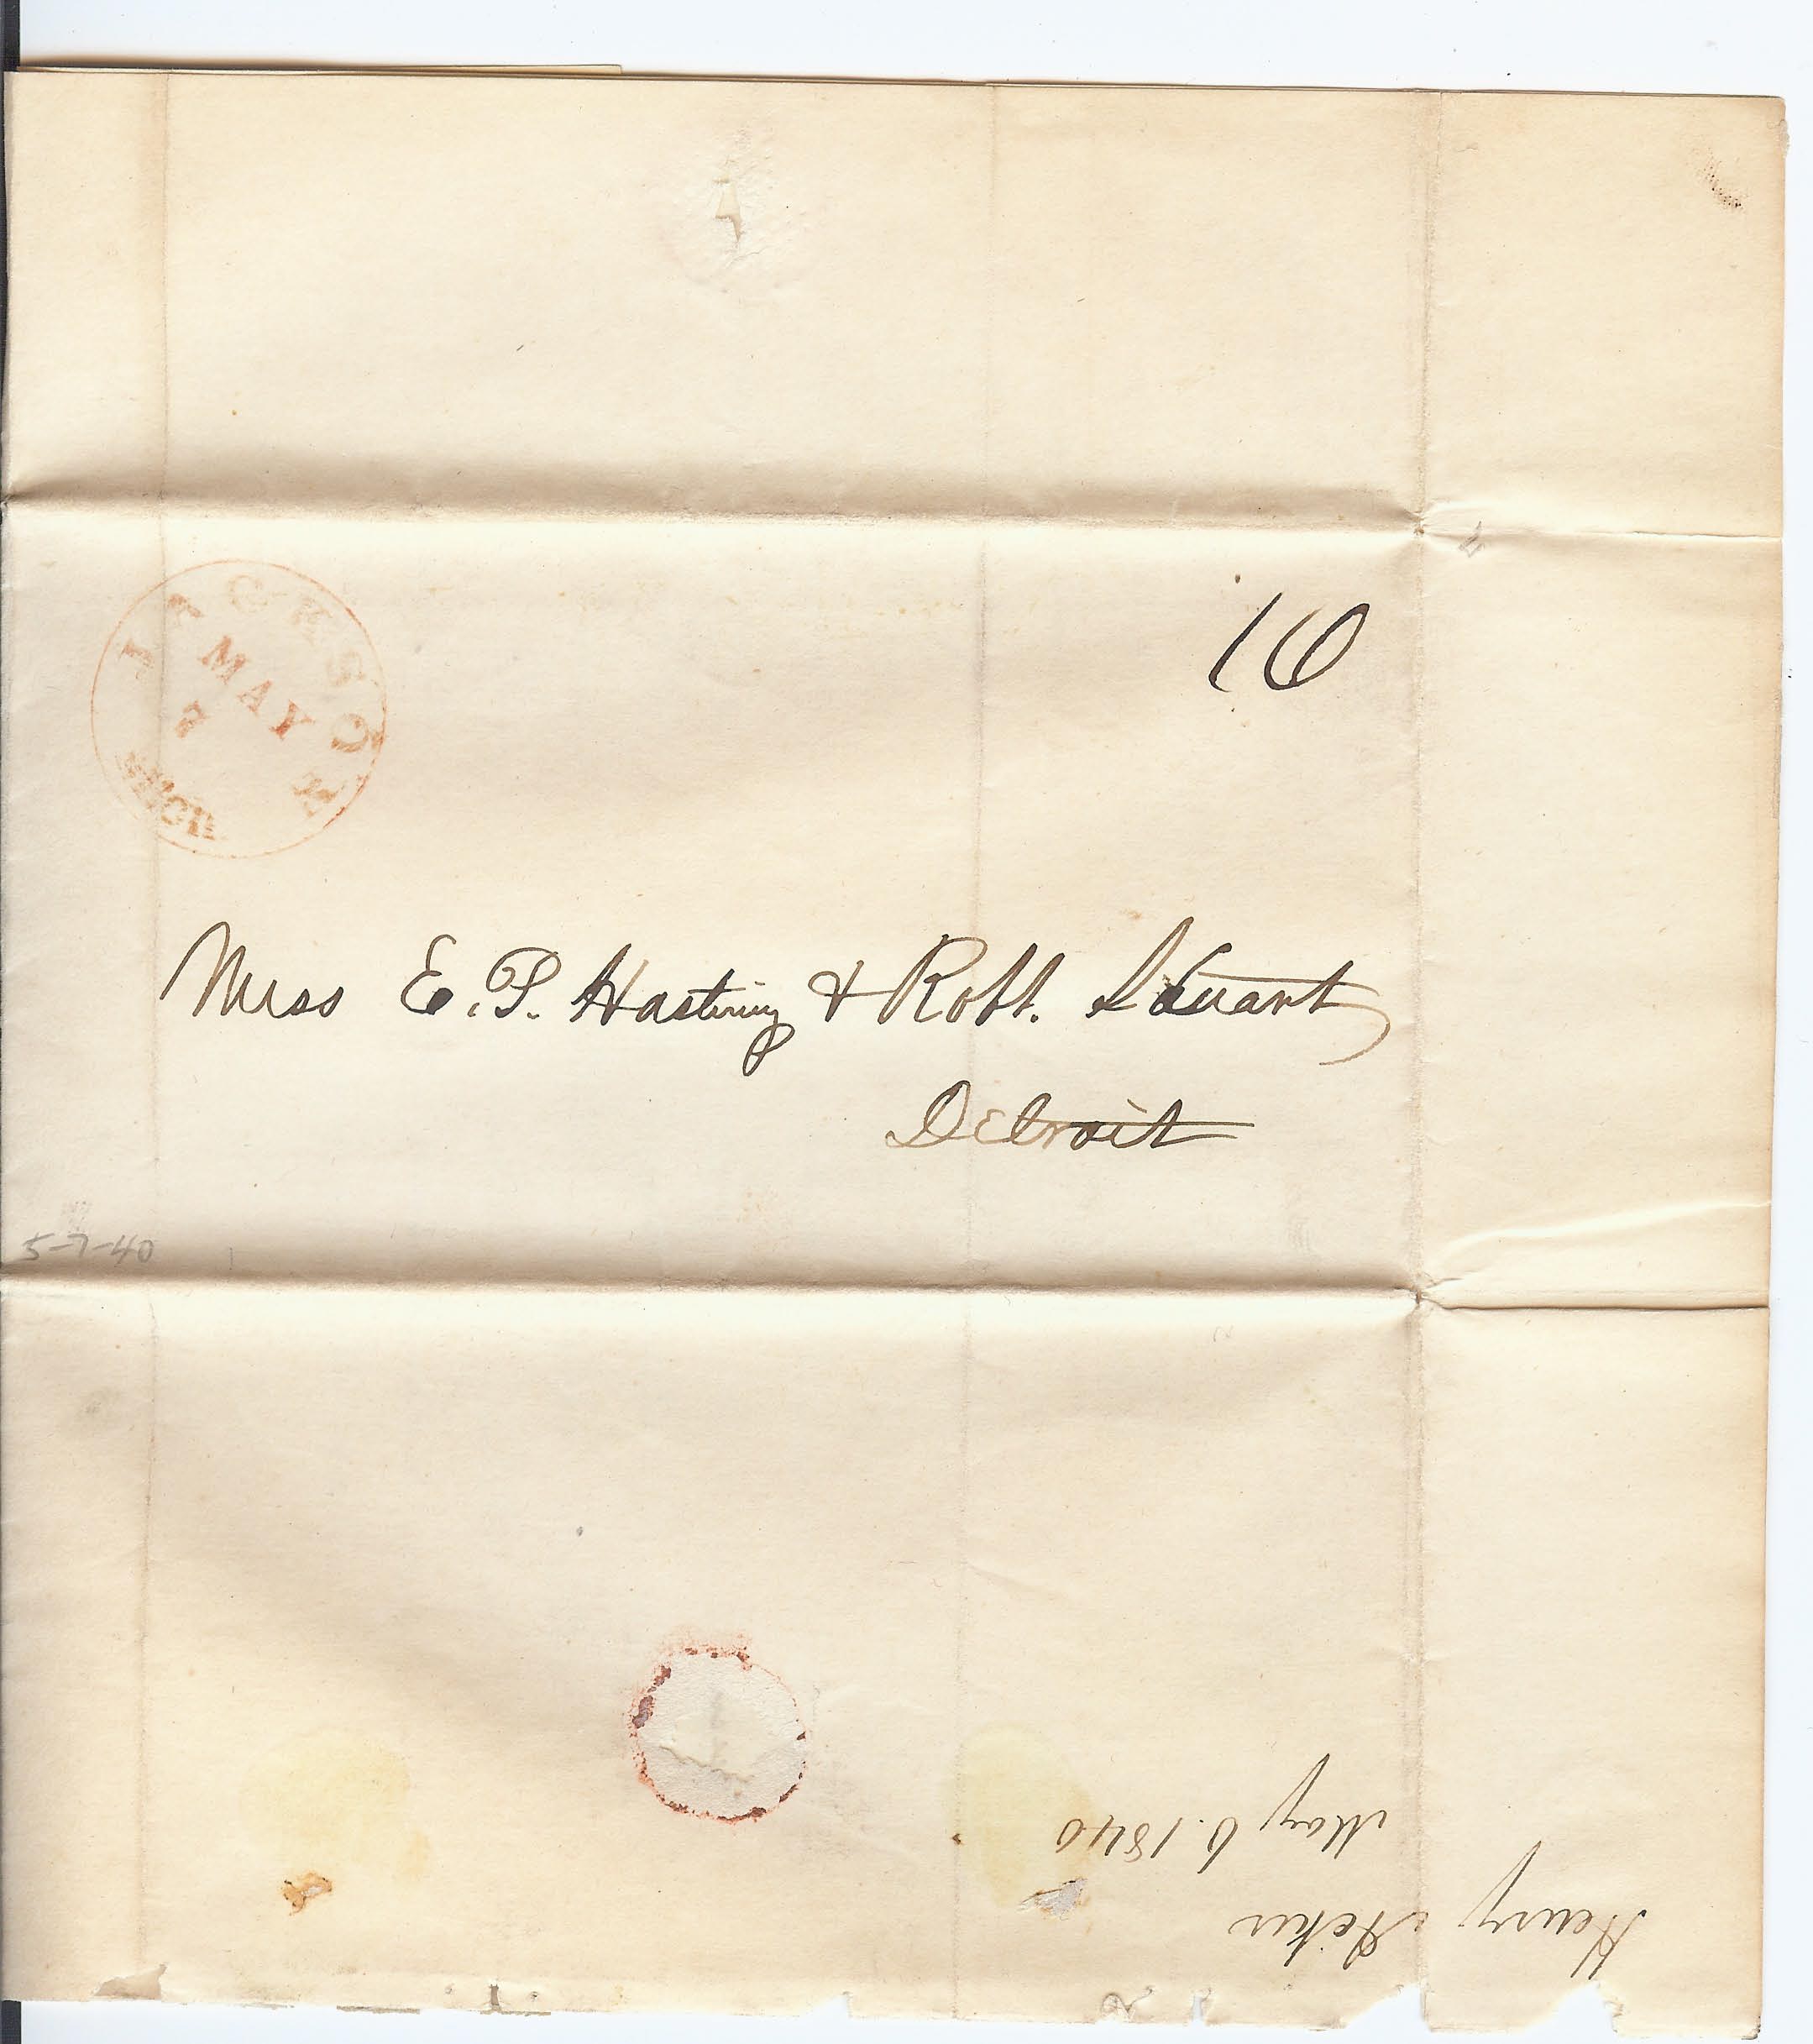 JACKSON
MICH
MAY
7
10
Mess E. P. Hasting & Robt. Stuart
Detroit
5-7-40
Henry
May 6. 1840